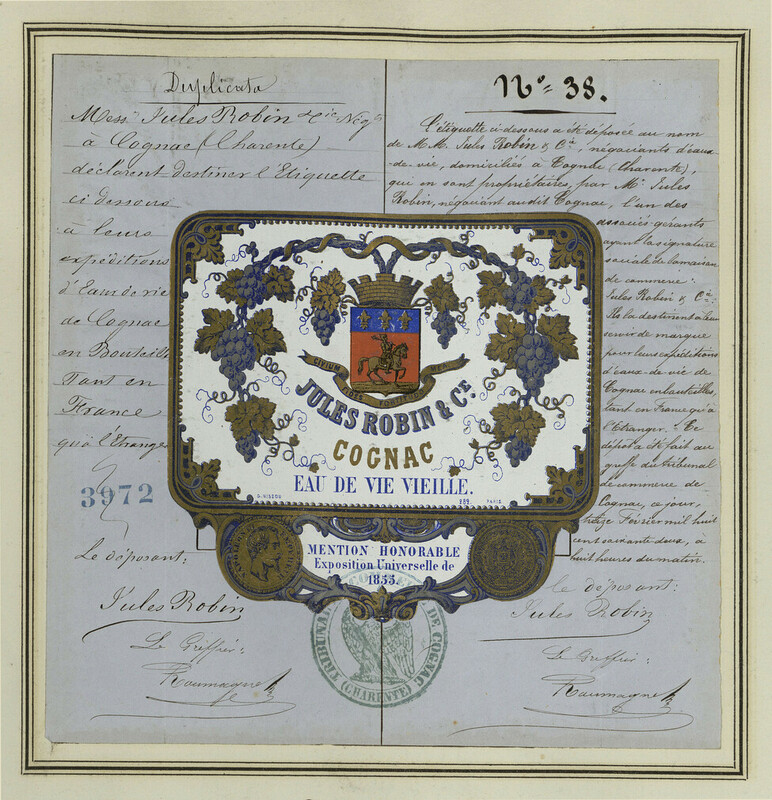 Duplicata
Mess. Jules Robin & Cie Nég.
à Cognac (Charente)
déclarent destiner l'Etiquette
ci dessous
à leurs
expéditions
d'Eau de vie
de Cognac
en Bouteille
Tant en
France
qu'à l'Etranger
3972
Le déposant:
Jules Robin
Le Greffier:
Roumagne
No = 38.
L'étiquette ci-dessous a été déposée au nom
de M.M. Jules Robin & Cie, négociants d'eaux-
de-vie, domiciliés à Cognac (Charente),
qui en sont propriétaires, par Mr Jules
Robin, négociant audit Cognac, l'un des
associés gérants
ayant la signature
sociale de la maison
de commerce:
Jules Robin & Cie:
Ils la destinent à leur
servir de marque
pour leurs expéditions
d'eaux-de vie de
Cognac en bouteilles,
tant en France qu'à
l'Etranger. Ce
dépôt a été fait au
greffe du tribunal
de commerce de
Cognac, ce jour,
treize Février mil huit
cent soixante deux, à
huit heures du matin.
le déposant:
Jules Robin
Le Greffier:
Roumagne
CIVIUM
JULES ROBIN & CE
COGNAC
EAU DE VIE VIEILLE.
289.
PARIS
MENTION HONORABLE
Exposition Universelle de
1855.
TRIBUNAL DE COGNAC
(CHARENTE)